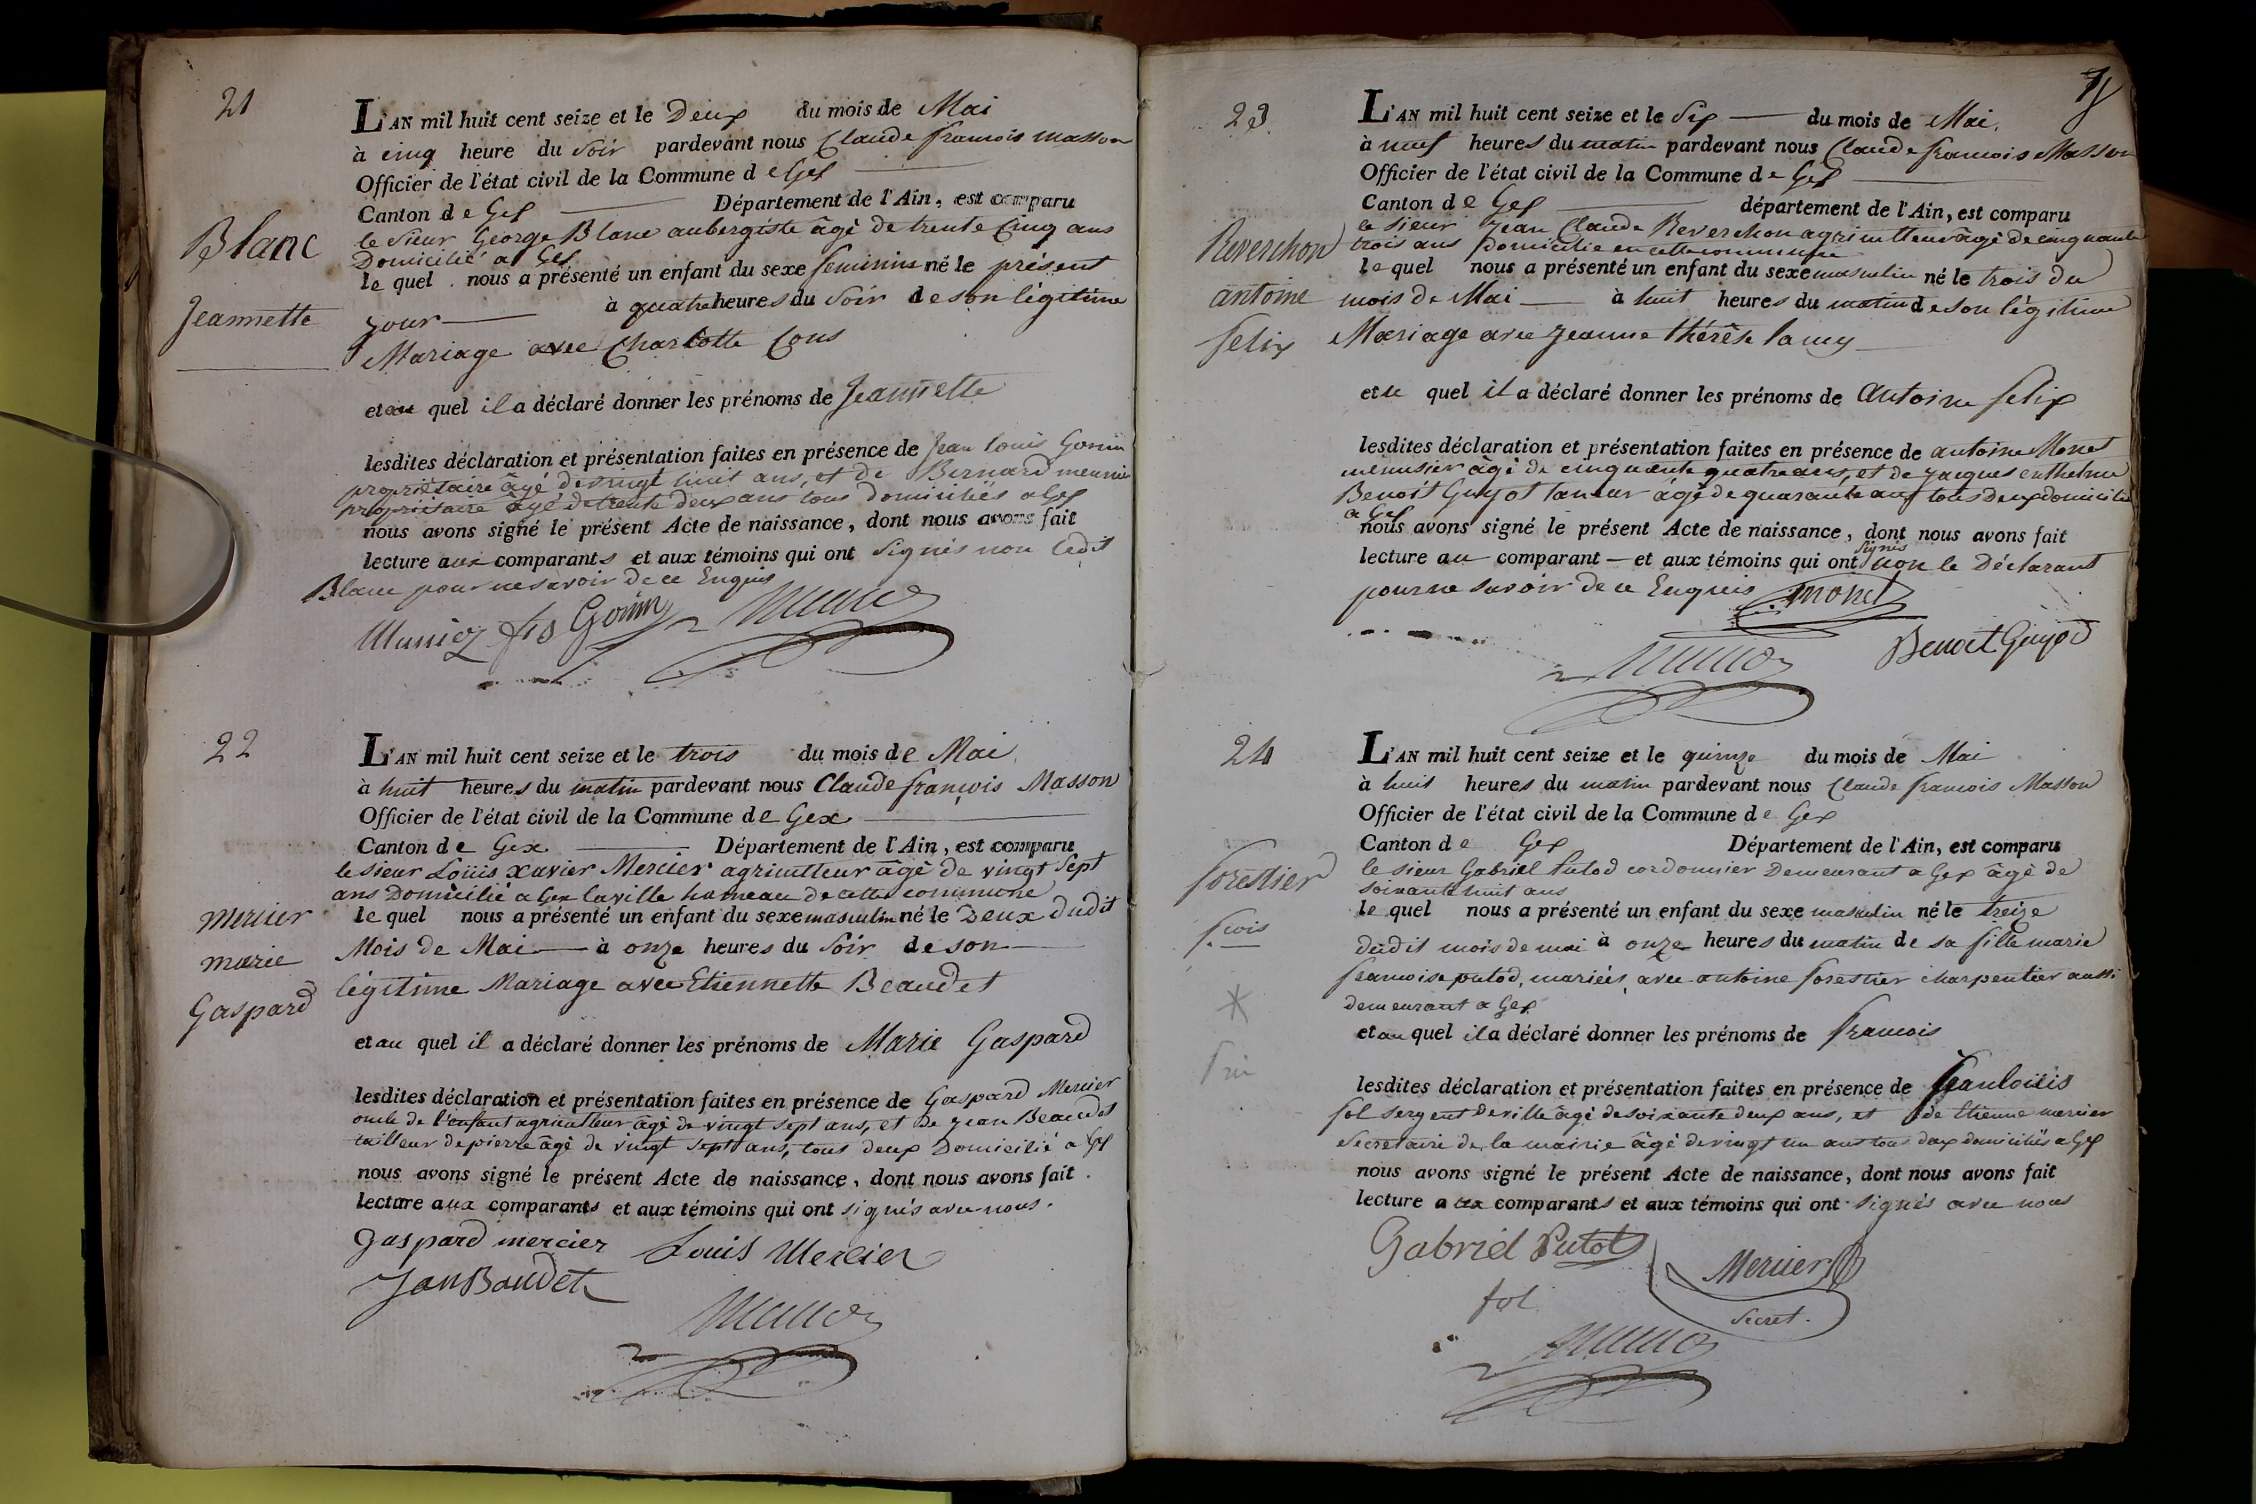 21
L'AN mil huit cent seize et le Deux du mois de Mai
à cinq heure du Soir pardevant nous Claude francois masson
Officier de l'état civil de la Commune de Gex
Canton de Gex Département de l'Ain, est comparu
le sieur George Blanc aubergiste âgé de trente cinq ans
Domicilié a Gex
Blanc
le quel nous a présenté un enfant du sexe feminin né le présent
Jeannette
jour à quatre heures du Soir de son légitime
Mariage avec Charlotte Cons
et au quel il a déclaré donner les prénoms de Jeannette
lesdites déclaration et présentation faites en présence de Jean louis Gonin
propriétaire âgé de vingt huit ans, et de Bernard meunier
propriétaire âgé de trente deux ans tous domiciliés a Gex
nous avons signé le présent Acte de naissance, dont nous avons fait
lecture aux comparants et aux témoins qui ont signés non ledit
Blanc pour ne savoir de ce Enquis
Gonin
22
L'AN mil huit cent seize et le trois du mois de Mai
à huit heures du matin pardevant nous Claude françois Masson
Officier de l'état civil de la Commune de Gex
Canton de Gex Département de l'Ain, est comparu
le sieur Loüis Xavier Mercier agriculteur âgé de vingt Sept
ans Domicilié a Gex la ville hameau de cette commune
mercier
marie
Gaspard
le quel nous a présenté un enfant du sexe masculin né le Deux dudit
Mois de Mai à onze heures du Soir de son
légitime Mariage avec Etiennette Beaudet
et au quel il a déclaré donner les prénoms de Marie Gaspard
lesdites déclaration et présentation faites en présence de Gaspard Mercier
oncle de l'enfant agriculteur âgé de vingt sept ans, et de Jean Beaudet
tailleur de pierre âgé de vingt sept ans, tous deux Domicilié a Gex
nous avons signé le présent Acte de naissance, dont nous avons fait
lecture aux comparants et aux témoins qui ont signés avec nous.
Gaspard mercier Louis Mercier
Jan Baudet
23
L'AN mil huit cent seize et le Six du mois de Mai.
à neuf heures du matin pardevant nous Claude francois Masson
Officier de l'état civil de la Commune de Gex
Canton de Gex département de l'Ain, est comparu
le sieur Jean Claude Reverchon agriculteur âgé de cinquante
trois ans Domicilié en cette commune
Reverchon
antoine
felix
le quel nous a présenté un enfant du sexe masculin né le trois du
mois de Mai à huit heures du matin de son légitime
Mariage avec Jeanne thérèse lamy
et le quel il a déclaré donner les prénoms de Antoine felix
lesdites déclaration et présentation faites en présence de antoine Monet
menusier âgé de cinquante quatre ans, et de Jacques enthelme
Benoît Guyot taneur âgé de quarante ans tous deux domicilié
a Gex
nous avons signé le présent Acte de naissance, dont nous avons fait
lecture au comparant et aux témoins qui ont signés non le Déclarant
pour ne savoir de ce Enquis
monet
Benoit Guyod
24
L'AN mil huit cent seize et le quinze du mois de Mai
à huit heures du matin pardevant nous Claude francois Masson
Officier de l'état civil de la Commune de Gex
Canton de Gex Département de l'Ain, est comparu
le sieur Gabriel Putod cordonnier Demeurant a Gex âgé de
soixante huit ans
forestier
fcois
le quel nous a présenté un enfant du sexe masculin né le treize
dudit mois de mai à onze heures du matin de sa fille marie
francoise putod, mariées, avec antoine forestier charpentier aussi
demeurant a Gex
et au quel il a déclaré donner les prénoms de francois
lesdites déclaration et présentation faites en présence de Jean loüis
fol sergent de ville âgé de soixante deux ans, et de Etienne mercier
secretaire de la mairie âgé de vingt un ans tous deux domiciliés a Gex
nous avons signé le présent Acte de naissance, dont nous avons fait
lecture aux comparants et aux témoins qui ont signés avec nous
Gabriel Putod
Mercier
secret.
fol